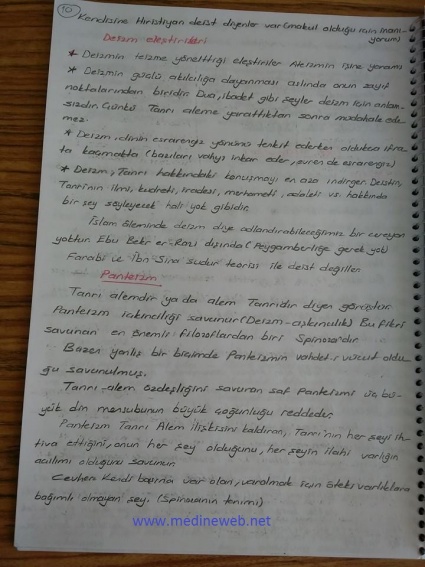 10
Kendisine Hiristiyan deist diyenler var (makul olduğu için inanı-
yorum)
Deizm eleştirileri
* Deizmin teizme yönelttiği eleştiriler Ateizmin işine yaramış
* Deizmin güçlü akılcılığa dayanması aslında onun zayıf
noktalarından biridir. Dua, ibadet gibi şeyler deizm için anlam-
sızdır. Çünkü Tanrı aleme yarattıktan sonra müdahale ede-
mez.
* Deizm, dinin esrarengiz yönünü tenkit ederken oldukça ifra-
ta kaçmakta (bazıları vahyi inkar eder, evren de esrarengiz)
* Deizm, Tanrı hakkındaki konuşmayı en aza indirger. Deistin,
Tanrı'nın ilmi, kudreti, iradesi, merhameti, adaleti vs. hakkında
bir şey söyleyecek hali yok gibidir.
İslam âleminde deizm diye adlandırabileceğimiz bir cereyan
yoktur. Ebu Bekr er-Razi dışında (Peygamberliğe gerek yok)
Farabi ve İbn Sina sudur teorisi ile deist değiller.
Panteizm
Tanrı alemdir ya da alem Tanrıdır diyen görüştür.
Panteizm içkinciliği savunur (Deizm-aşkıncılık) Bu fikri
savunan en önemli filozoflardan biri Spinoza'dır.
Bazen yanlış bir biçimde Panteizmin vahdet-i vücut oldu-
ğu savunulmuş.
Tanrı-alem özdeşliğini savunan saf Panteizmi üç bü-
yük din mensubunun büyük çoğunluğu reddeder.
Panteizm Tanrı Alem ilişkisini kaldıran, Tanrı'nın her şeyi ih-
tiva ettiğini, onun her şey olduğunu, her şeyin ilahi varlığın
açılımı olduğunu savunur.
Cevher: Kendi başına var olan, varolmak için öteki varlıklara
bağımlı olmayan şey. (Spinozanın tanımı)
www.medineweb.net